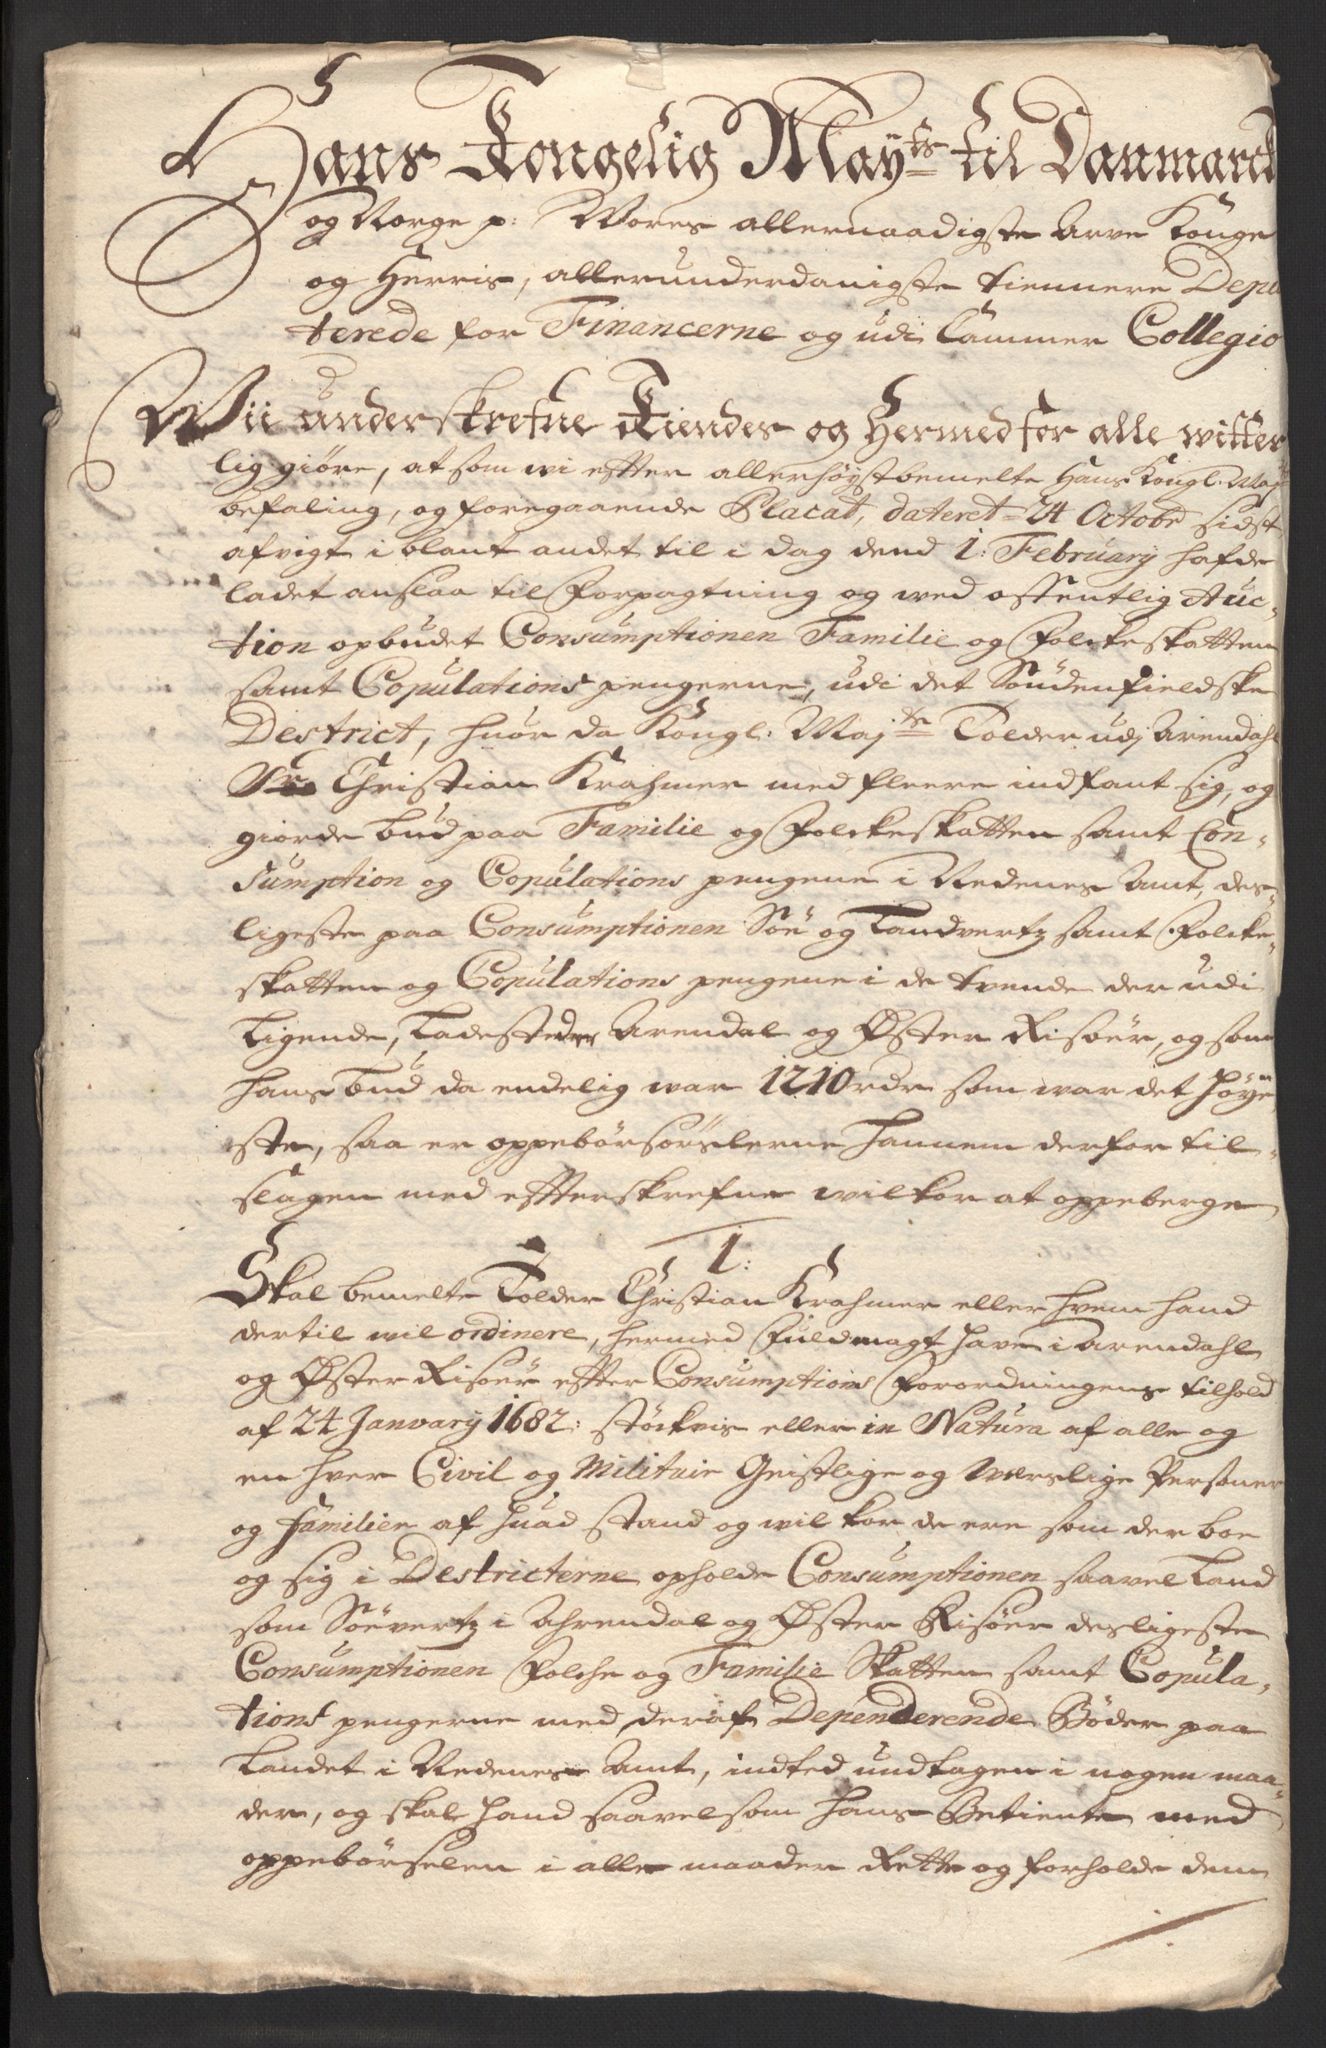 Hans Kongelig Mayts til Danmarck
og Norge p: Wores allernaadigste Arve Konge
og Herris, allerunderdanigste tiennere Depu
terede for Financerne og udi Cammer Collegio
Wii underskrefne Kiender og Hermed for alle witter
lig giöre, at som wi effter allerhöystbemelte Hans Kongl. May
befaling, og foregaaende Placat, dateret 24 Octobr sidst
afvigt iblant andet til i dag dend 1: February hafde
ladet anslaa til Forpagtning og wed offentlig Auc-
tion opbudet Consumptionen Familie og Folckeskatten
samt Copulations pengerne, udi det Söndenfieldske
District, huor da Kongl: Majts Tolder udj Arendahl
Sr Christian Krahmer med fleere indfant sig, og
giorde bud paa Familie og Folckeskatten samt Con-
sumption og Copulations pengene i Nedenes Amt, des-
ligeste paa Consumptionen Söe og Landvertz samt Folcke-
skatten og Copulations pengene i de tvende der udi
Ligende, Ladesteder Arendal og Öster Risöer, og som
hans bud da endelig war 1210 rdr som war det höye
ste, saa er oppebörsörslerne hannem derfor til-
slagen med effterskrefne wilkor at oppeberge
1:
Skal bemelte Tolder Christian Krahmer eller hvem hand
dertil wil ordinere, hermed fuldmagt have i Arendahl
og Öster Risöer effter Consumptions Forordningens tilhold
af 24 January 1682: stöckvis eller in Natura af alle og
en hver Civil og Militair Geistlige og Werslige Personer
og Familier af huad stand og wilkor de ere som der boe
og sig i Destricterne opholde Consumptionen saavel Land
som Söevertz i Ahrendal og Öster Risöer desligeste
Consumptionen Folche og Familie Skatten samt Copula-
tions pengerne med deraf Dependerende Böder paa
Landet i Nedenes Amt, indted undtagen i nogen maa-
der, og skal hand saavelsom hans Betiente med
oppebörselen i alle maader Rette og forholde dem